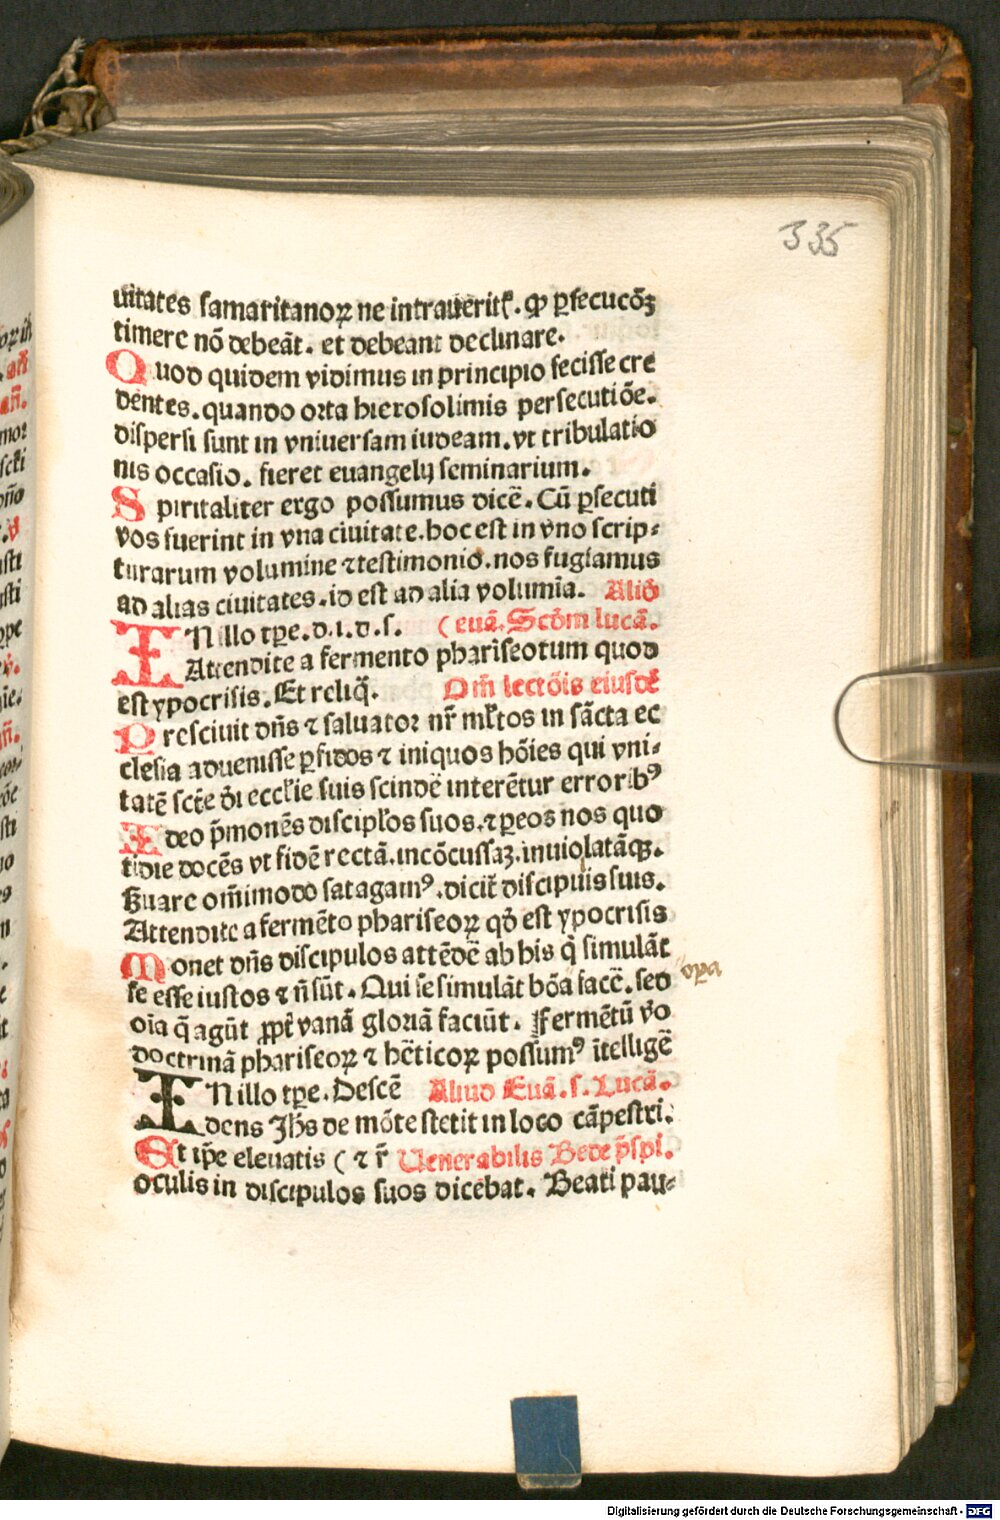 335
uitates samaritanoꝝ ne intraueritꝭ. ꝙ ꝑsecucōꝫ
timere nō debeāt. et debeant declinare.
Quod quidem vidimus in principio fecisse cre
dentes. quando orta hierosolimis persecutiōe.
dispersi sunt in vniuersam iudeam. vt tribulatio
nis occasio. fieret euangelij seminarium.
Spiritaliter ergo possumus dicē. Cū ꝑsecuti
vos fuerint in vna ciuitate. hoc est in vno scrip-
turarum volumine ⁊ testimonio. nos fugiamus
ad alias ciuitates. id est ad alia volumīa. Aliḋ
IN illo tꝑe. d. i. d. s. ( euā. Scḋm lucā.
Attendite a fermento phariseorum quod
est ypocrisis. Et reliq̄. Om̄ lectōis eiusdē
Presciuit dn̄s ⁊ saluator nr̄ ml̄tos in sācta ec
clesia aduenisse ꝑfidos ⁊ iniquos hōies qui vni-
tatē sct̄e ḋi eccl̄ie suis scindē interētur erroribꝰ
Ideo p̄monēs discipl̄os suos. ⁊ ꝑ eos nos quo
tidie docēs vt fidē rectā. incōcussaꝫ. inuiolatāqꝫ.
Guare om̄imodo satagamꝰ. dicit̄ discipulis suis.
Attendite a fermēto phariseoꝝ qḋ est ypocrisis
Monet dn̄s discipulos attēdē ab his q̄ simulāt
se esse iustos ⁊ n̄ sūt. Qui se simulāt bōa facē. sed
oīa q̄ agūt ꝓpt̄ vanā gloriā faciūt. Fermētū v̊o
doctrinā phariseoꝝ ⁊ hēticoꝝ possumꝰ ītelligē
IN illo tꝑe. Descē Aliud Euā. s. Lucā.
dens Jh̄s de mōte stetit in loco cāpestri.
Et ip̄e eleuatis ( ⁊ r̄ Uenerabilis Bede p̄spi.
oculis in discipulos suos dicebat. Beati pau-
Digitalisierung gefördert durch die Deutsche Forschungsgemeinschaft - DFG